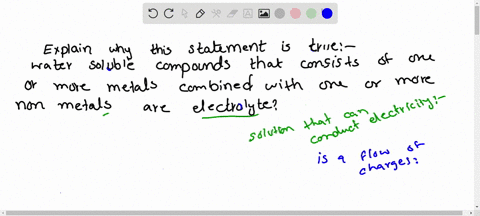 Explain why this statement is true:-
water soluble compounds that consists of one
or more metals combined with one or more
non metals are electrolyte?
solution that can
conduct electricity:-
is a flow of
charges: